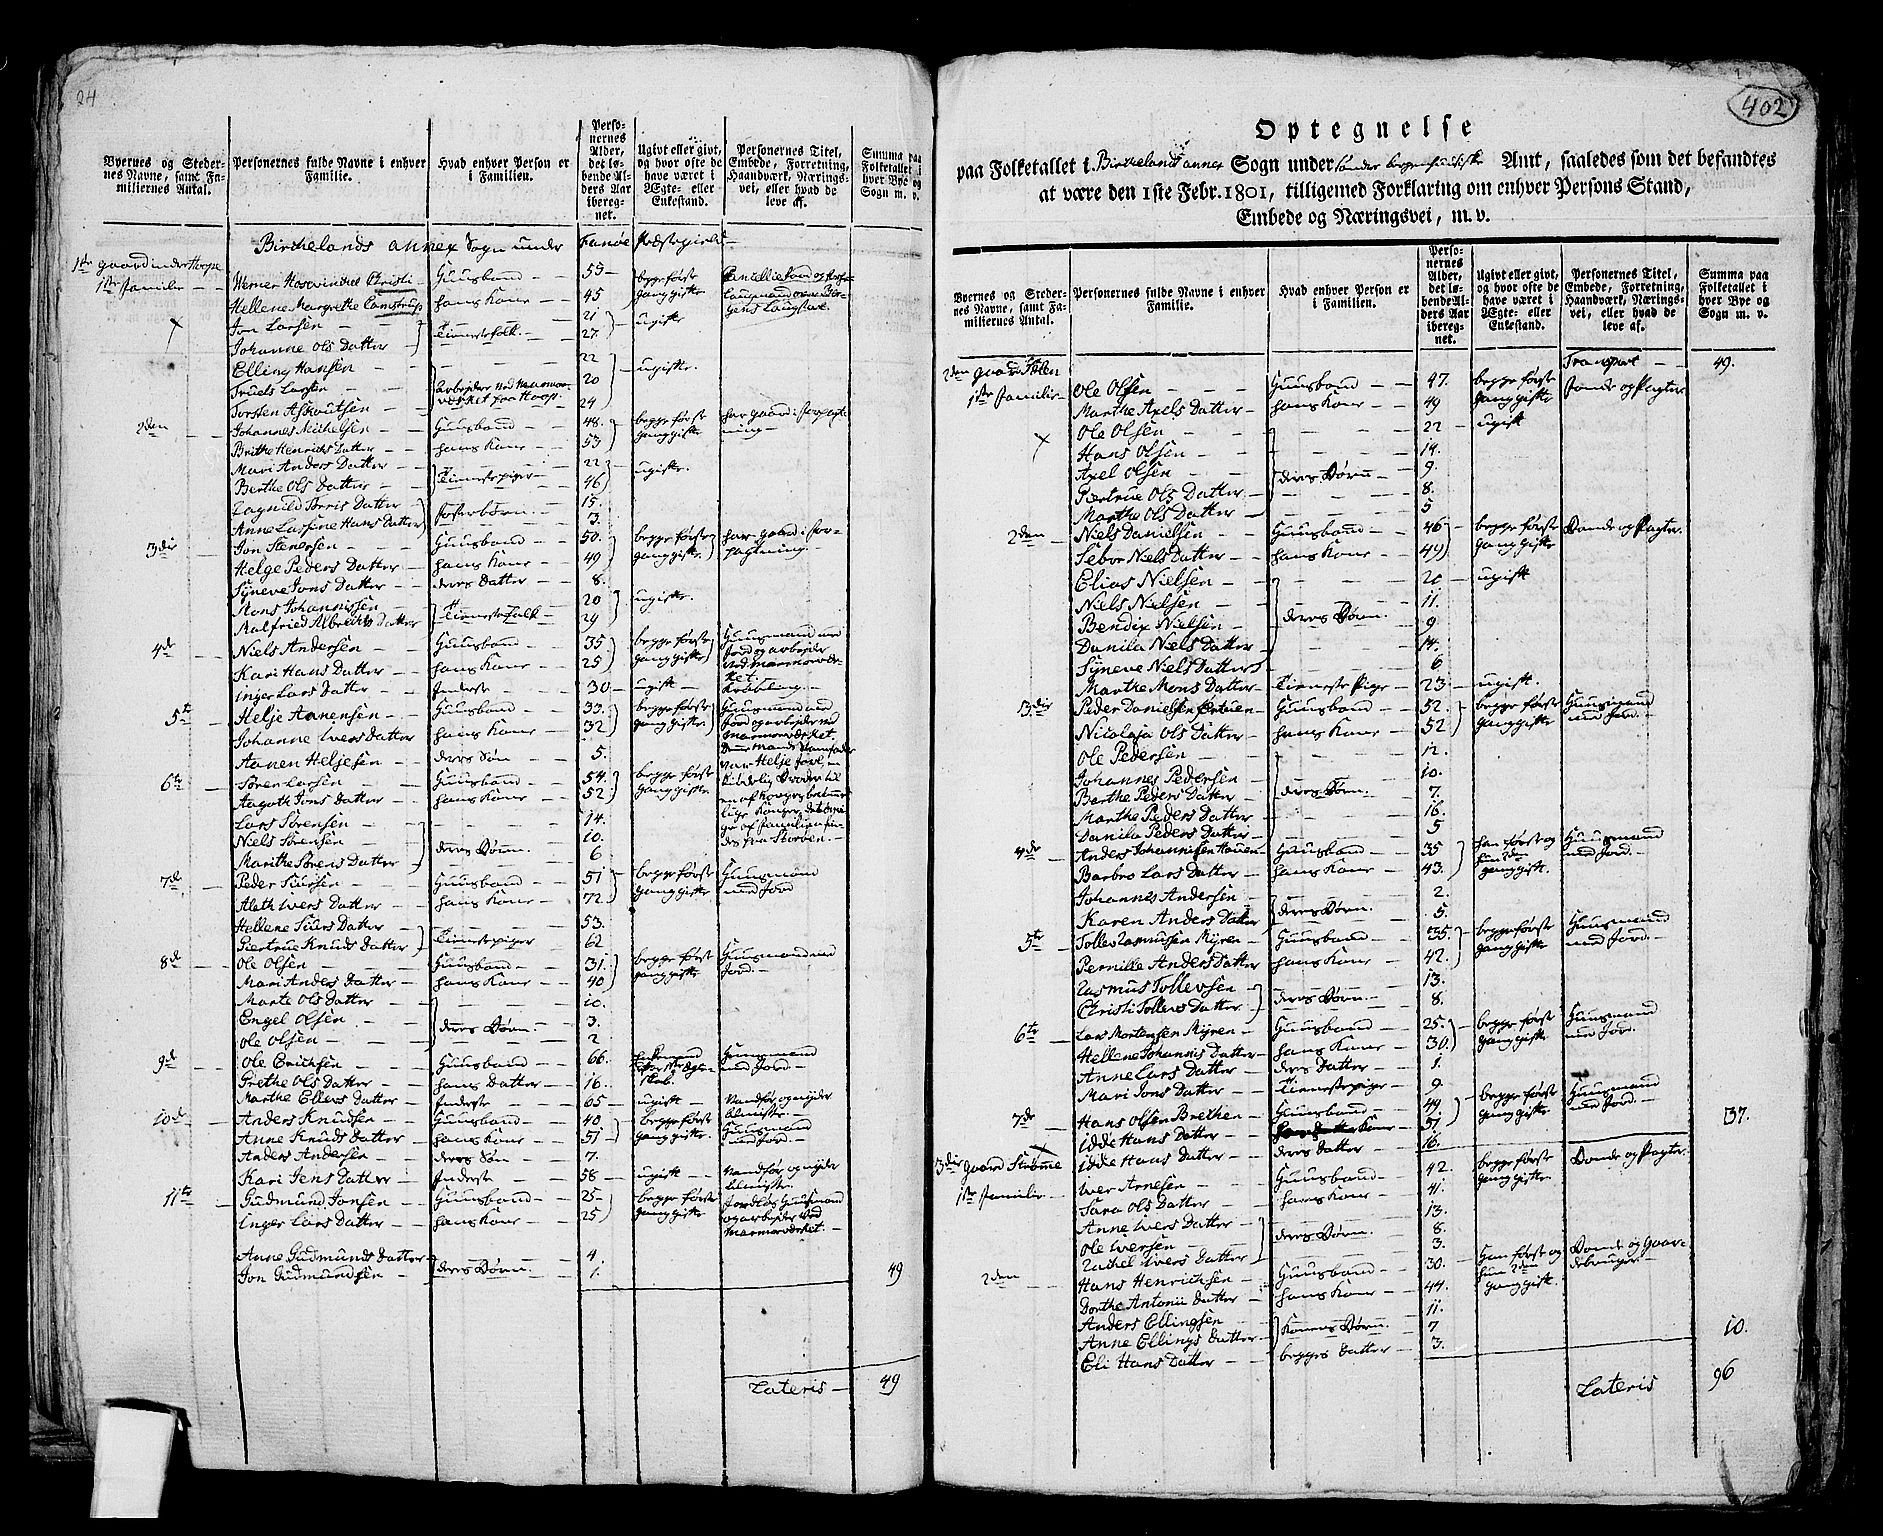 24
Byernes og Steder- nes Navne, samt Fa- miliernes Antal.
Personernes fulde Navne i enhver Familie.
Hvad enhver Person er i Familien.
Perso- nernes Alder, det lø- bende Al- ders Aar ibereg- net.
Ugivt eller givt, og hvor ofte de have været i Ægte- eller Enkestand.
Personernes Titel, Embede, Forretning, Haandværk, Nærings- vei, eller hvad de leve af.
Summa paa Folketallet i hver Bye og Sogn m. v.
Birchelands annex Sogn under Fanøe Præstegield
1ste gaard inder Hoope
1ste familie Werner Hosvinckel Christi Huusbond 55 begge første
Hellene Margrethe Lamstrup hans Kone 45 gang gifte
Jon Larsen 21
Johanne Ols Datter Tienestefolk 27 ugifte
Elling Hansen 22
Truels Larsen 20 ugifte
Torsten Asloutsen 24
2den Johannes Michelsen Huusbond 48 begge første har gaard i forpagt-
Brithe Henrichs Datter hans Kone 53 gang gifte ning
Mari Anders Datter 22
Berthe Ols Datter Tienestepiger 46 ugifte
Ragnild Torris Datter 15.
Anne Larsine Hans Datter fosterbørn 3.
3die Jon Stenersen Huusbond 50. begge første har gaard i for-
Helge Peders Datter hans Kone 49 gang gifte pagtning
Syneve Jons Datter deres Datter 8.
Mons Johannissen 20
Malfried Albrechts Datter Tienestefolk 29 ugifte
4de Niels Andersen Huusbond 35 begge første Huusmand med
Kari Hans Datter hans Kone 25 gang gifte jord og arbejder ved Marmorvær- ket.
Inger Lars Datter Inderste 30 ugift Krøbling
5te Helje Aanensen Huusbond 33. begge første Huusmand med
Johanne Ivers Datter hans Kone 32 gang gifte jord og arbejder ved Marmorværket.
Aanen Heljesen deres Søn 5.
6te Søren Larsen Huusbond 54. begge første
Aagoth Jons Datter hans Kone 52 gang gifte
Lars Sørensen 14.
Niels Sørensen 10.
Marithe Sørens Datter deres Børn 6
7de Peder Siursen Huusbond 51 begge første Huusmand
Aleth Ivers Datter hans Kone 72 gang gifte med Jord
Hellene Siurs Datter 53.
Piertrue Knuds Datter Tienestepiger 62
8de Ole Olsen Huusbond 31. begge først Huusmand med
Mari Anders Datter hans Kone 40 gang gifte Jord.
Marte Ols Datter 10.
Engel Olsen 3.
Ole Olsen deres Børn 2
9de Ole Erichsen Huusbond 66. Huusmand med Jord.
Grethe Ols Datter hans Datter 16.
Marthe Ellers Datter Inderste 65 ugift Vandfør og nyder Almisse.
10de Anders Knudsen Huusbond 40 begge første Huusmand
Anne Knuds Datter hans Kone 51 gang gifte. med Jord.
Anders Andersen deres Søn 7.
Kari Jens Datter Inderste 58 ugift Vandfør og nyder Almisse.
11te Gudmund Jonsen Huusbond 25 begge første Jordløs Huusmand
Inger Lars Datter hans Kone 25 gang gifte og arbejder ved Marmorværket.
Anne Gudmunds Datter 4.
Jon Gudmundsen deres Børn 1. 49
Lateris 49
402
Optegnelse
paa Folketallet i Birkeland annex Sogn under Sønder bergenhuuske Amt, saaledes som det befandtes
at være den 1ste Febr. 1801, tilligemed Forklaring om enhver Persons Stand,
Embede og Næringsvei, m. v.
Byernes og Steder- nes Navne, samt Fa- miliernes Antal.
Personernes fulde Navne i enhver Familie.
Hvad enhver Person er i Familien.
Perso- nernes Alder, det lø- bende Al- ders Aar ibereg- net.
Ugivt eller givt, og hvor ofte de have været i Ægte- eller Enkestand.
Personernes Titel, Embede, Forretning, Haandværk, Nærings- vei, eller hvad de leve af.
Summa paa Folketallet i hver Bye og Sogn m. v.
Transport 49.
2den gaard Tølen
1ste Familie Ole Olsen Huusbond 47. begge første Bonde og Pagter
Marthe Axels Datter hans Kone 49 gang gifte
Ole Olsen 22 ugift
Hans Olsen 14.
Axel Olsen deres Børn 9.
Piertrue Ols Datter 8.
Marthe Ols Datter 5
2den Niels Danielsen Huusbond 46 begge første Bonde og Pagter.
Sebor Niels Datter hans Kone 49 gang gifte
Elias Nielsen 20 ugift
Niels Nielsen 11.
Bendix Nielsen deres Børn 9
Danila Niels Datter 14.
Syneve Niels Datter 6
Marthe Mons Datter Tieneste Pige 23. ugift.
3die Peder Danielsen Huusbond 52. begge første Huusmand
Nicolaja Ols Datter hans Kone 52 gang gifte med Jord.
Ole Pedersen 12.
Johannes Pedersen 10.
Barthe Peders Datter deres Børn 7.
Marthe Peders Datter 16.
Danila Peders Datter 5
4de Anders Johannesen Hauen Huusbond 35 han første og Huusmand
Barbro Lars Datter hans Kone 43. hun 2den gang gift. med Jord.
Johannes Andersen 2.
Karen Anders Datter deres Børn 5.
5te Tolle Rasmusen Myren Huusbond 35. begge første Huusmand
Pernille Anders Datter hans Kone 42. gang gifte med Jord.
Rasmus Tollevsen 13.
Christi Tollevs Datter deres Børn 8.
6te Lars Mortensen Myren Huusbond 25. begge først Huusmand
Hellene Johannis Datter hans Kone 30. gang gifte med Jord.
Anne Lars Datter deres Datter 1.
Mari Jons Datter Tienestepige 9
7de Hans Olsen Brethen Huusbond 49. begge første Huusmand
Idde Hans Datter Kone 51 gang gifte med Jord. 37.
Idde Hans Datter deres Datter 16.
3die gaard Strømme
1ste familie Iver Arnesen Huusbond 42. begge først Bonde og Pagter.
Sara Ols Datter hans Kone 41. gang gifte
Anne Ivers Datter 13.
Ole Iversen deres Børn. 8.
Rachel Ivers Datter 3.
2den Hans Henrichsen Huusbond 30. Han først og Bonde og Gaar-
Dorthe Antonii Datter hans Kone 44. hun 2den gang gift. debruger.
Anders Ellingsen 11.
Anne Ellings Datter Konens Børn 7
Eli Hans Datter begges Datter 3. 10.
Lateris 96